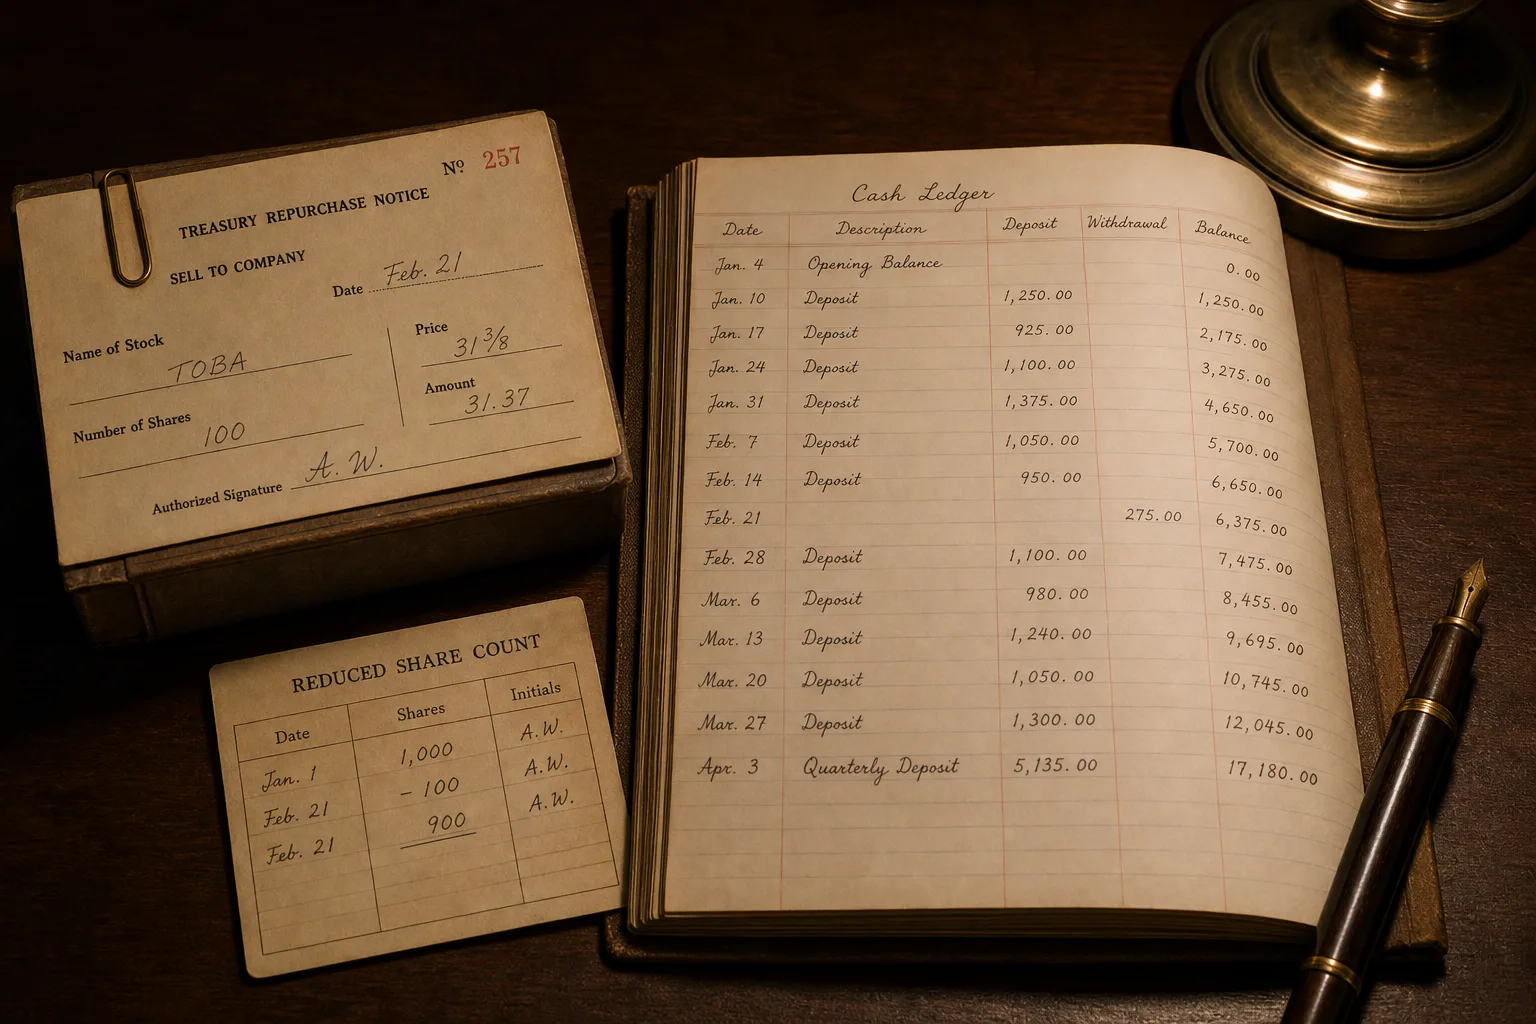 Nº 257
TREASURY REPURCHASE NOTICE
SELL TO COMPANY
Date Feb. 21
Name of Stock TOBA
Price 31 3/8
Number of Shares 100
Amount 31.37
Authorized Signature A. W.
REDUCED SHARE COUNT
Date Shares Initials
Jan. 1 1,000 A.W.
Feb. 21 – 100 A.W.
Feb. 21 900 A.W.
Cash Ledger
Date Description Deposit Withdrawal Balance
Jan. 4 Opening Balance 0.00
Jan. 10 Deposit 1,250.00 1,250.00
Jan. 17 Deposit 925.00 2,175.00
Jan. 24 Deposit 1,100.00 3,275.00
Jan. 31 Deposit 1,375.00 4,650.00
Feb. 7 Deposit 1,050.00 5,700.00
Feb. 14 Deposit 950.00 6,650.00
Feb. 21 275.00 6,375.00
Feb. 28 Deposit 1,100.00 7,475.00
Mar. 6 Deposit 980.00 8,455.00
Mar. 13 Deposit 1,240.00 9,695.00
Mar. 20 Deposit 1,050.00 10,745.00
Mar. 27 Deposit 1,300.00 12,045.00
Apr. 3 Quarterly Deposit 5,135.00 17,180.00